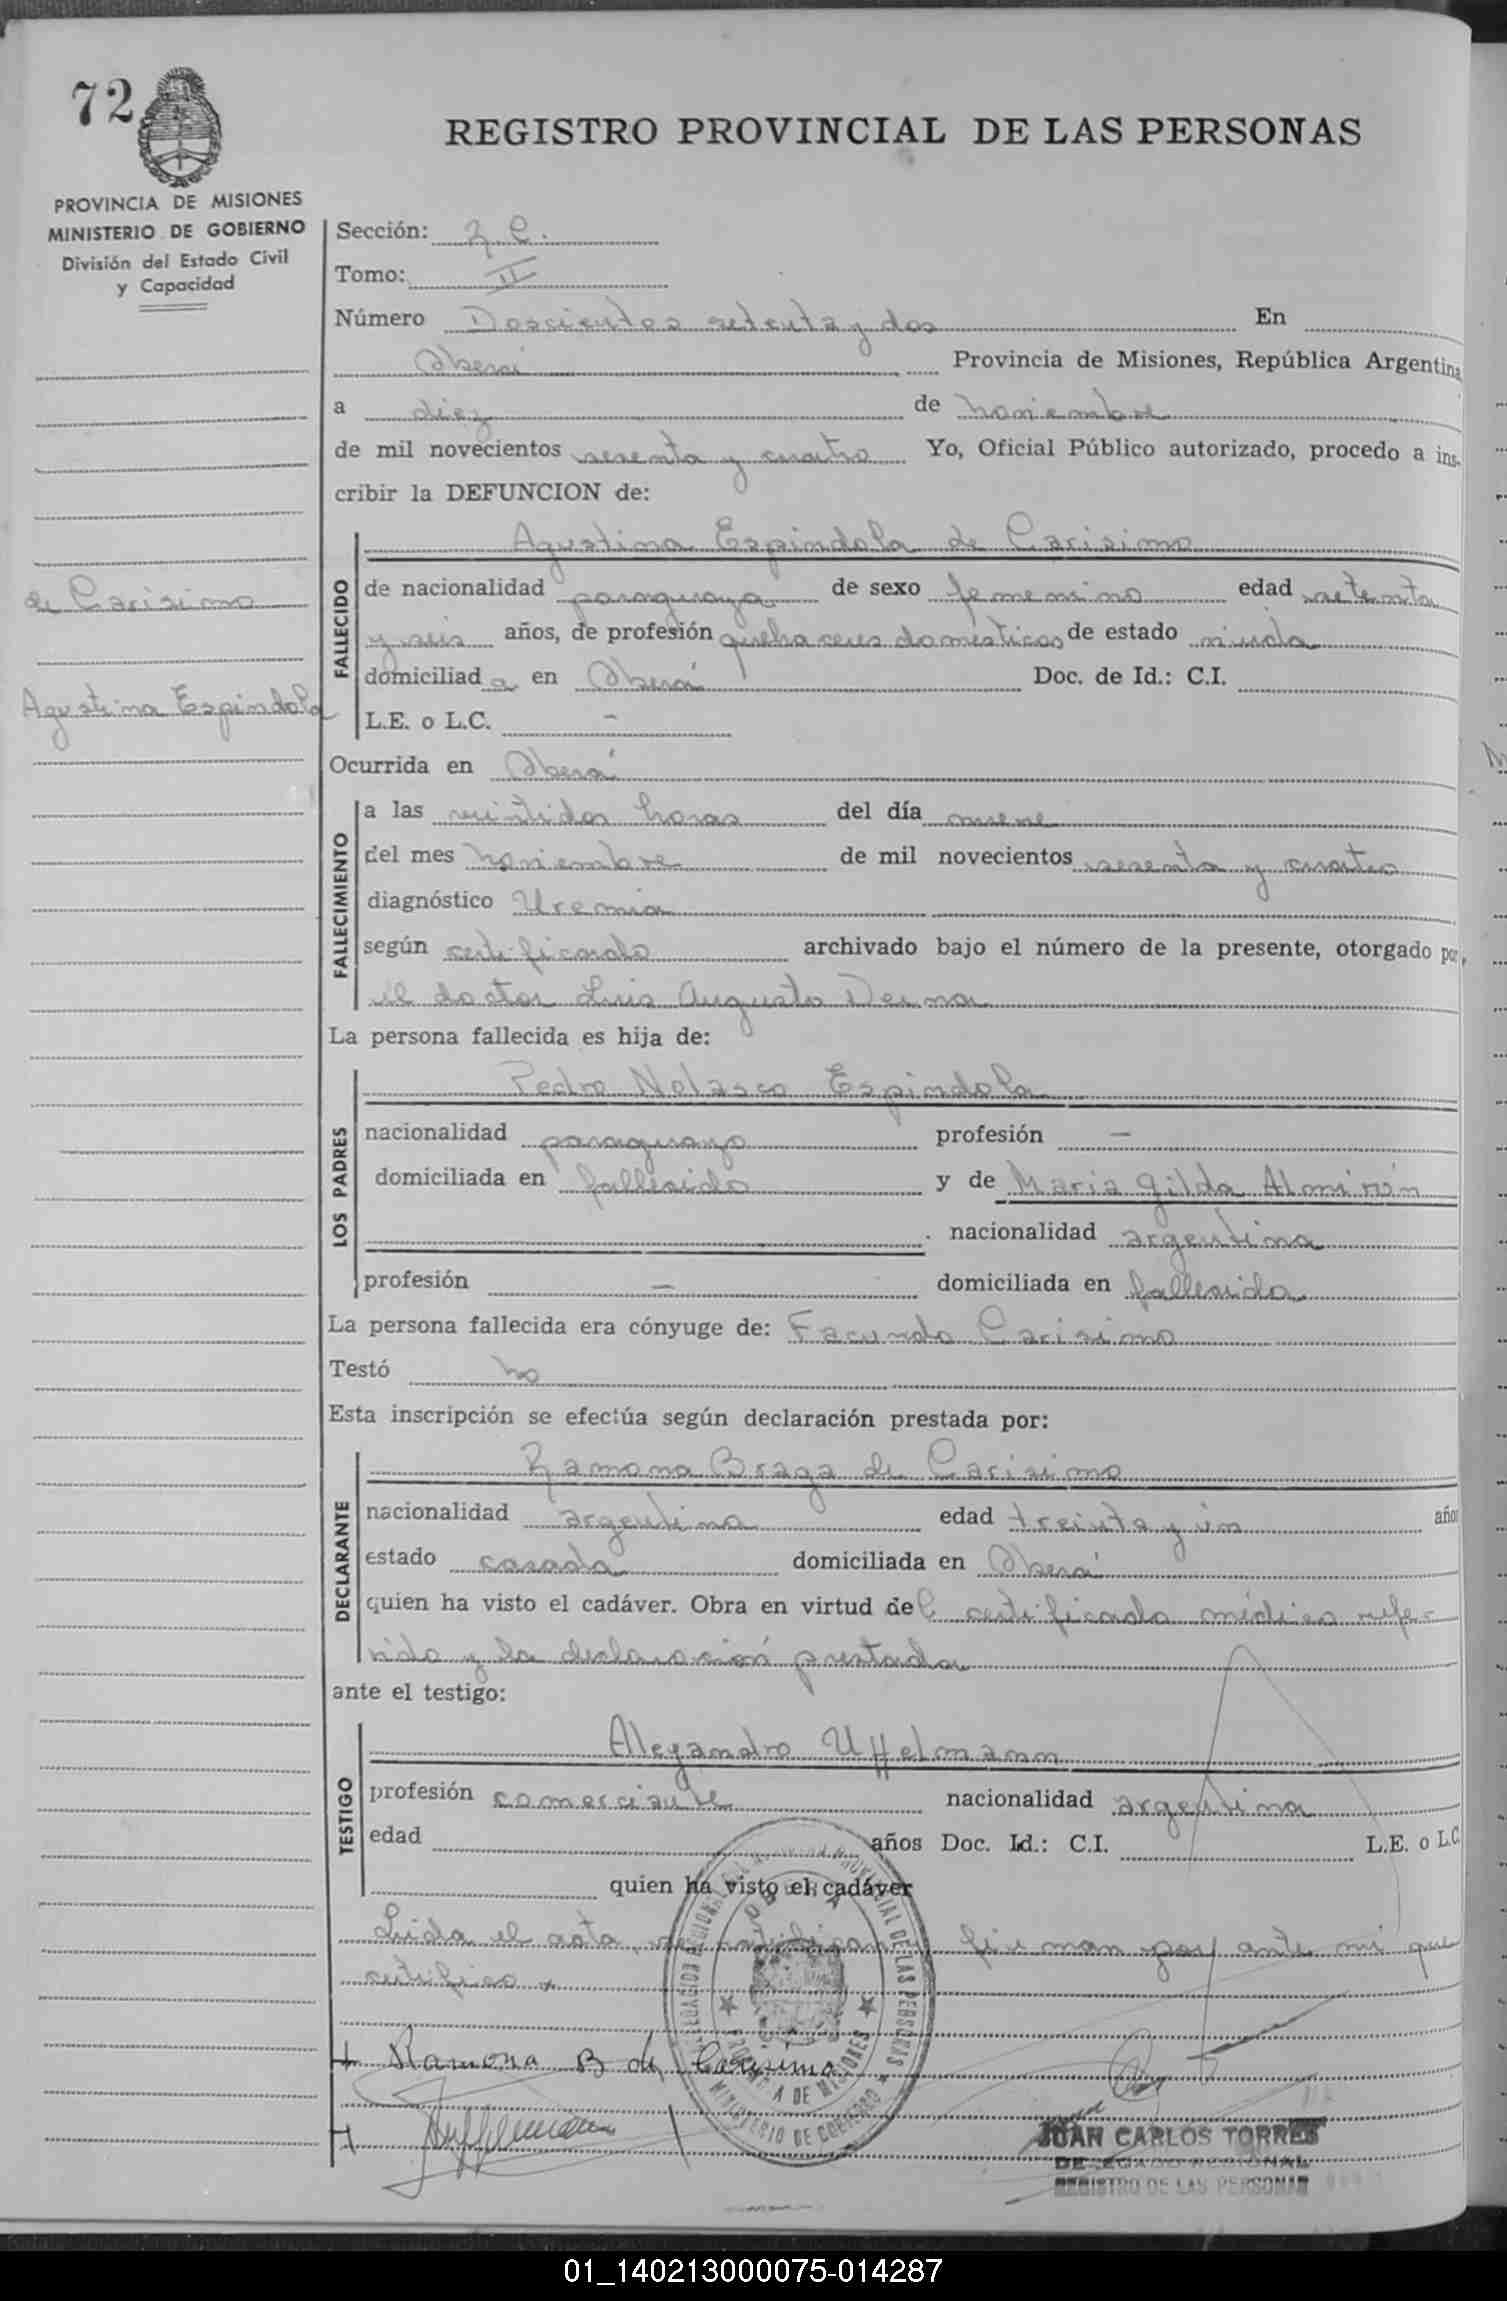 72
REGISTRO PROVINCIAL DE LAS PERSONAS
PROVINCIA DE MISIONES
MINISTERIO DE GOBIERNO
División del Estado Civil
y Capacidad
Sección: R C.
Tomo: II
Número Doscientos setenta y dos En
Oberá Provincia de Misiones, República Argentina
a diez de noviembre
de mil novecientos sesenta y cuatro Yo, Oficial Público autorizado, procedo a ins-
cribir la DEFUNCION de:
de Carisimo
Agustina Espindola
FALLECIDO
Agustina Espindola de Carisimo
de nacionalidad paraguaya de sexo femenino edad setenta
y seis años, de profesión quehaceres domésticos de estado viuda
domiciliad a en Oberá Doc. de Id.: C.I.
L.E. o L.C. –
Ocurrida en Oberá
FALLECIMIENTO
a las veintidos horas del día nueve
del mes noviembre de mil novecientos sesenta y cuatro
diagnóstico Uremia
según certificado archivado bajo el número de la presente, otorgado por,
el doctor Luis Augusto Derna
La persona fallecida es hija de:
LOS PADRES
Pedro Nolasco Espindola
nacionalidad paraguayo profesión —
domiciliada en fallecido y de Maria Gilda Almirón
nacionalidad argentina
profesión — domiciliada en fallecida
La persona fallecida era cónyuge de: Facundo Carisimo
Testó no
Esta inscripción se efectúa según declaración prestada por:
DECLARANTE
Ramona Braga de Carisimo
nacionalidad argentina edad treinta y un años
estado casada domiciliada en Oberá
quien ha visto el cadáver. Obra en virtud del certificado médico refe-
rido y la declaración prestada
ante el testigo:
TESTIGO
Alejandro Uffelmann
profesión comerciante nacionalidad argentina
edad años Doc. Id.: C.I. L.E. o L.C.
quien ha visto el cadáver
Leida el acta, se ratifican firman por ante mi que
certifico.
Ramona B de Carisimo
Uffelmann
OBERA
PROVINCIA DE MISIONES
MINISTERIO DE GOBIERNO
JUAN CARLOS TORRES
DELEGADO REGIONAL
REGISTRO DE LAS PERSONAS
01_140213000075-014287